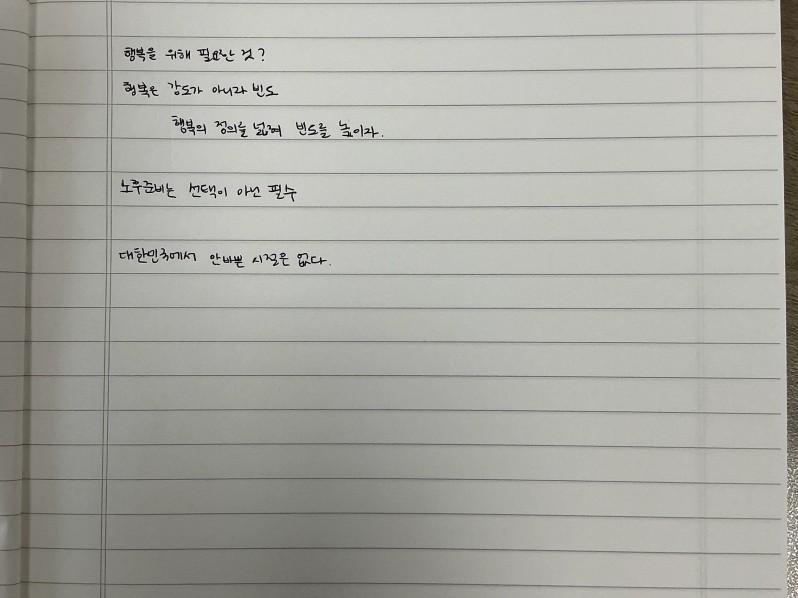 행복을 위해 필요한 것?
행복은 강도가 아니라 빈도
행복의 정의를 넓혀 빈도를 높이자.
노후준비는 선택이 아닌 필수
대한민국에서 안바쁜 시절은 없다.